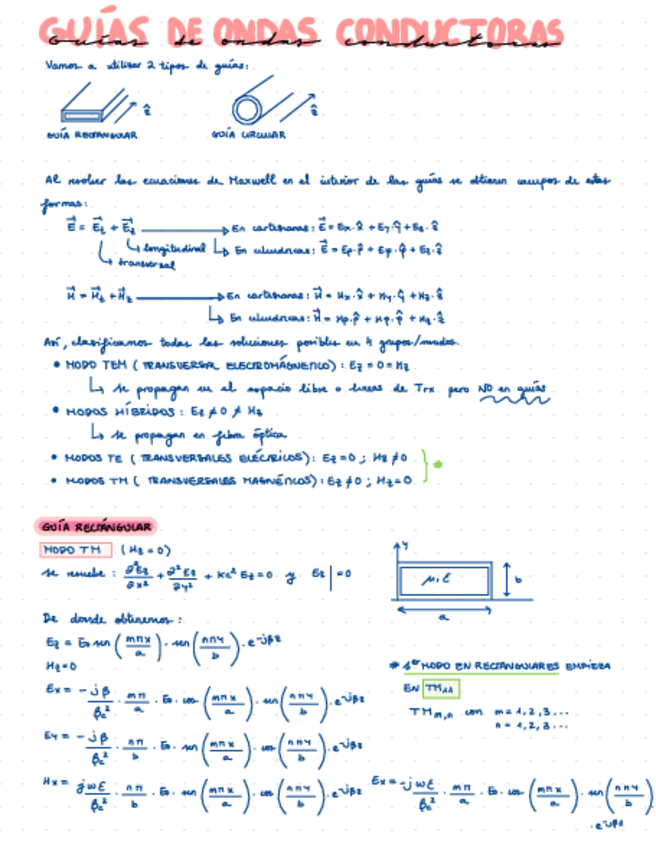 GUÍAS DE ONDAS CONDUCTORAS
Vamos a utilizar 2 tipos de guías:
ẑ ẑ
GUÍA RECTANGULAR GUÍA CIRCULAR
Al resolver las ecuaciones de Maxwell en el interior de las guías se obtienen campos de estas
formas:
E⃗ = E⃗t + E⃗z → En cartesianas: E⃗ = Ex·x̂ + Ey·ŷ + Ez·ẑ
↳ longitudinal ↳ En cilíndricas: E⃗ = Eρ·ρ̂ + Eφ·φ̂ + Ez·ẑ
↳ transversal
H⃗ = H⃗t + H⃗z → En cartesianas: H⃗ = Hx·x̂ + Hy·ŷ + Hz·ẑ
↳ En cilíndricas: H⃗ = Hρ·ρ̂ + Hφ·φ̂ + Hz·ẑ
Así, clasificamos todas las soluciones posibles en 4 grupos/modos.
• MODO TEM (TRANSVERSAL ELECTROMÁGNETICO): Ez = 0 = Hz
↳ se propagan en el espacio libre o líneas de Trx pero NO en guías
• MODOS HÍBRIDOS: Ez ≠ 0 ≠ Hz
↳ se propagan en fibra óptica
• MODOS TE (TRANSVERSALES ELÉCTRICOS): Ez = 0 ; Hz ≠ 0
• MODOS TM (TRANSVERSALES MAGNÉTICOS): Ez ≠ 0 ; Hz = 0 } *
GUÍA RECTÁNGULAR
MODO TM (Hz = 0)
se resuelve: ∂²Ez/∂x² + ∂²Ez/∂y² + kc² Ez = 0 y Ez| = 0
y μ, ε b
a
De donde obtenemos:
Ez = Eo sen(mπx/a) · sen(nπy/b) · e^-jβz
Hz = 0
* 1er MODO EN RECTANGULARES EMPIEZA
EN TM11
TMm,n con m = 1, 2, 3...
n = 1, 2, 3...
Ex = -jβ/βc² · mπ/a · Eo · cos(mπx/a) · sen(nπy/b) · e^-jβz
Ey = -jβ/βc² · nπ/b · Eo · sen(mπx/a) · cos(nπy/b) · e^-jβz
Hx = jωε/βc² · nπ/b · Eo · sen(mπx/a) · cos(nπy/b) · e^-jβz
Ex = -jωε/βc² · mπ/a · Eo · cos(mπx/a) · sen(nπy/b)
· e^-jβz